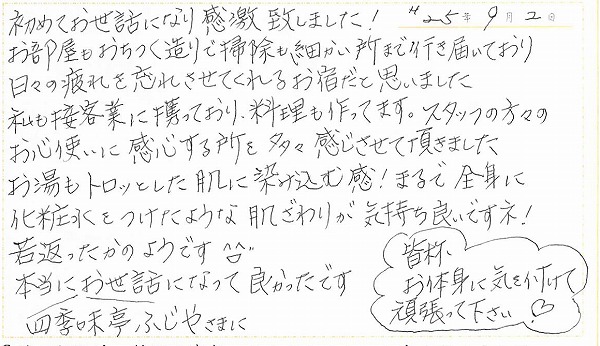 H25年9月2日
初めてお世話になり感激致しました!
お部屋もおちつく造りで掃除も細かい所まで行き届いており
日々の疲れを忘れさせてくれるお宿だと思いました
私も接客業に携っており、料理も作ってます。スタッフの方々の
お心使いに感心する所を多々感じさせて頂きました
お湯もトロッとした肌に染み込む感!まるで全身に
化粧水をつけたような肌ざわりが気持ち良いですネ!
若返ったかのようです^^
本当にお世話になって良かったです
四季味亭ふじやさまに
皆称、
お体身に気を付けて
頑張って下さい♡